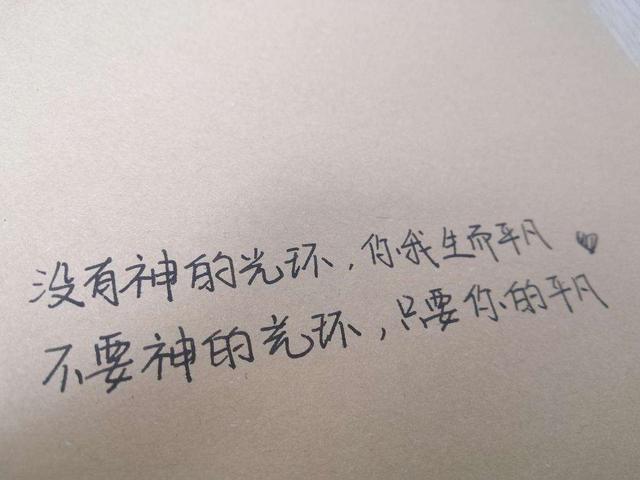 没有神的光环，你我生而平凡
不要神的光环，只要你的平凡